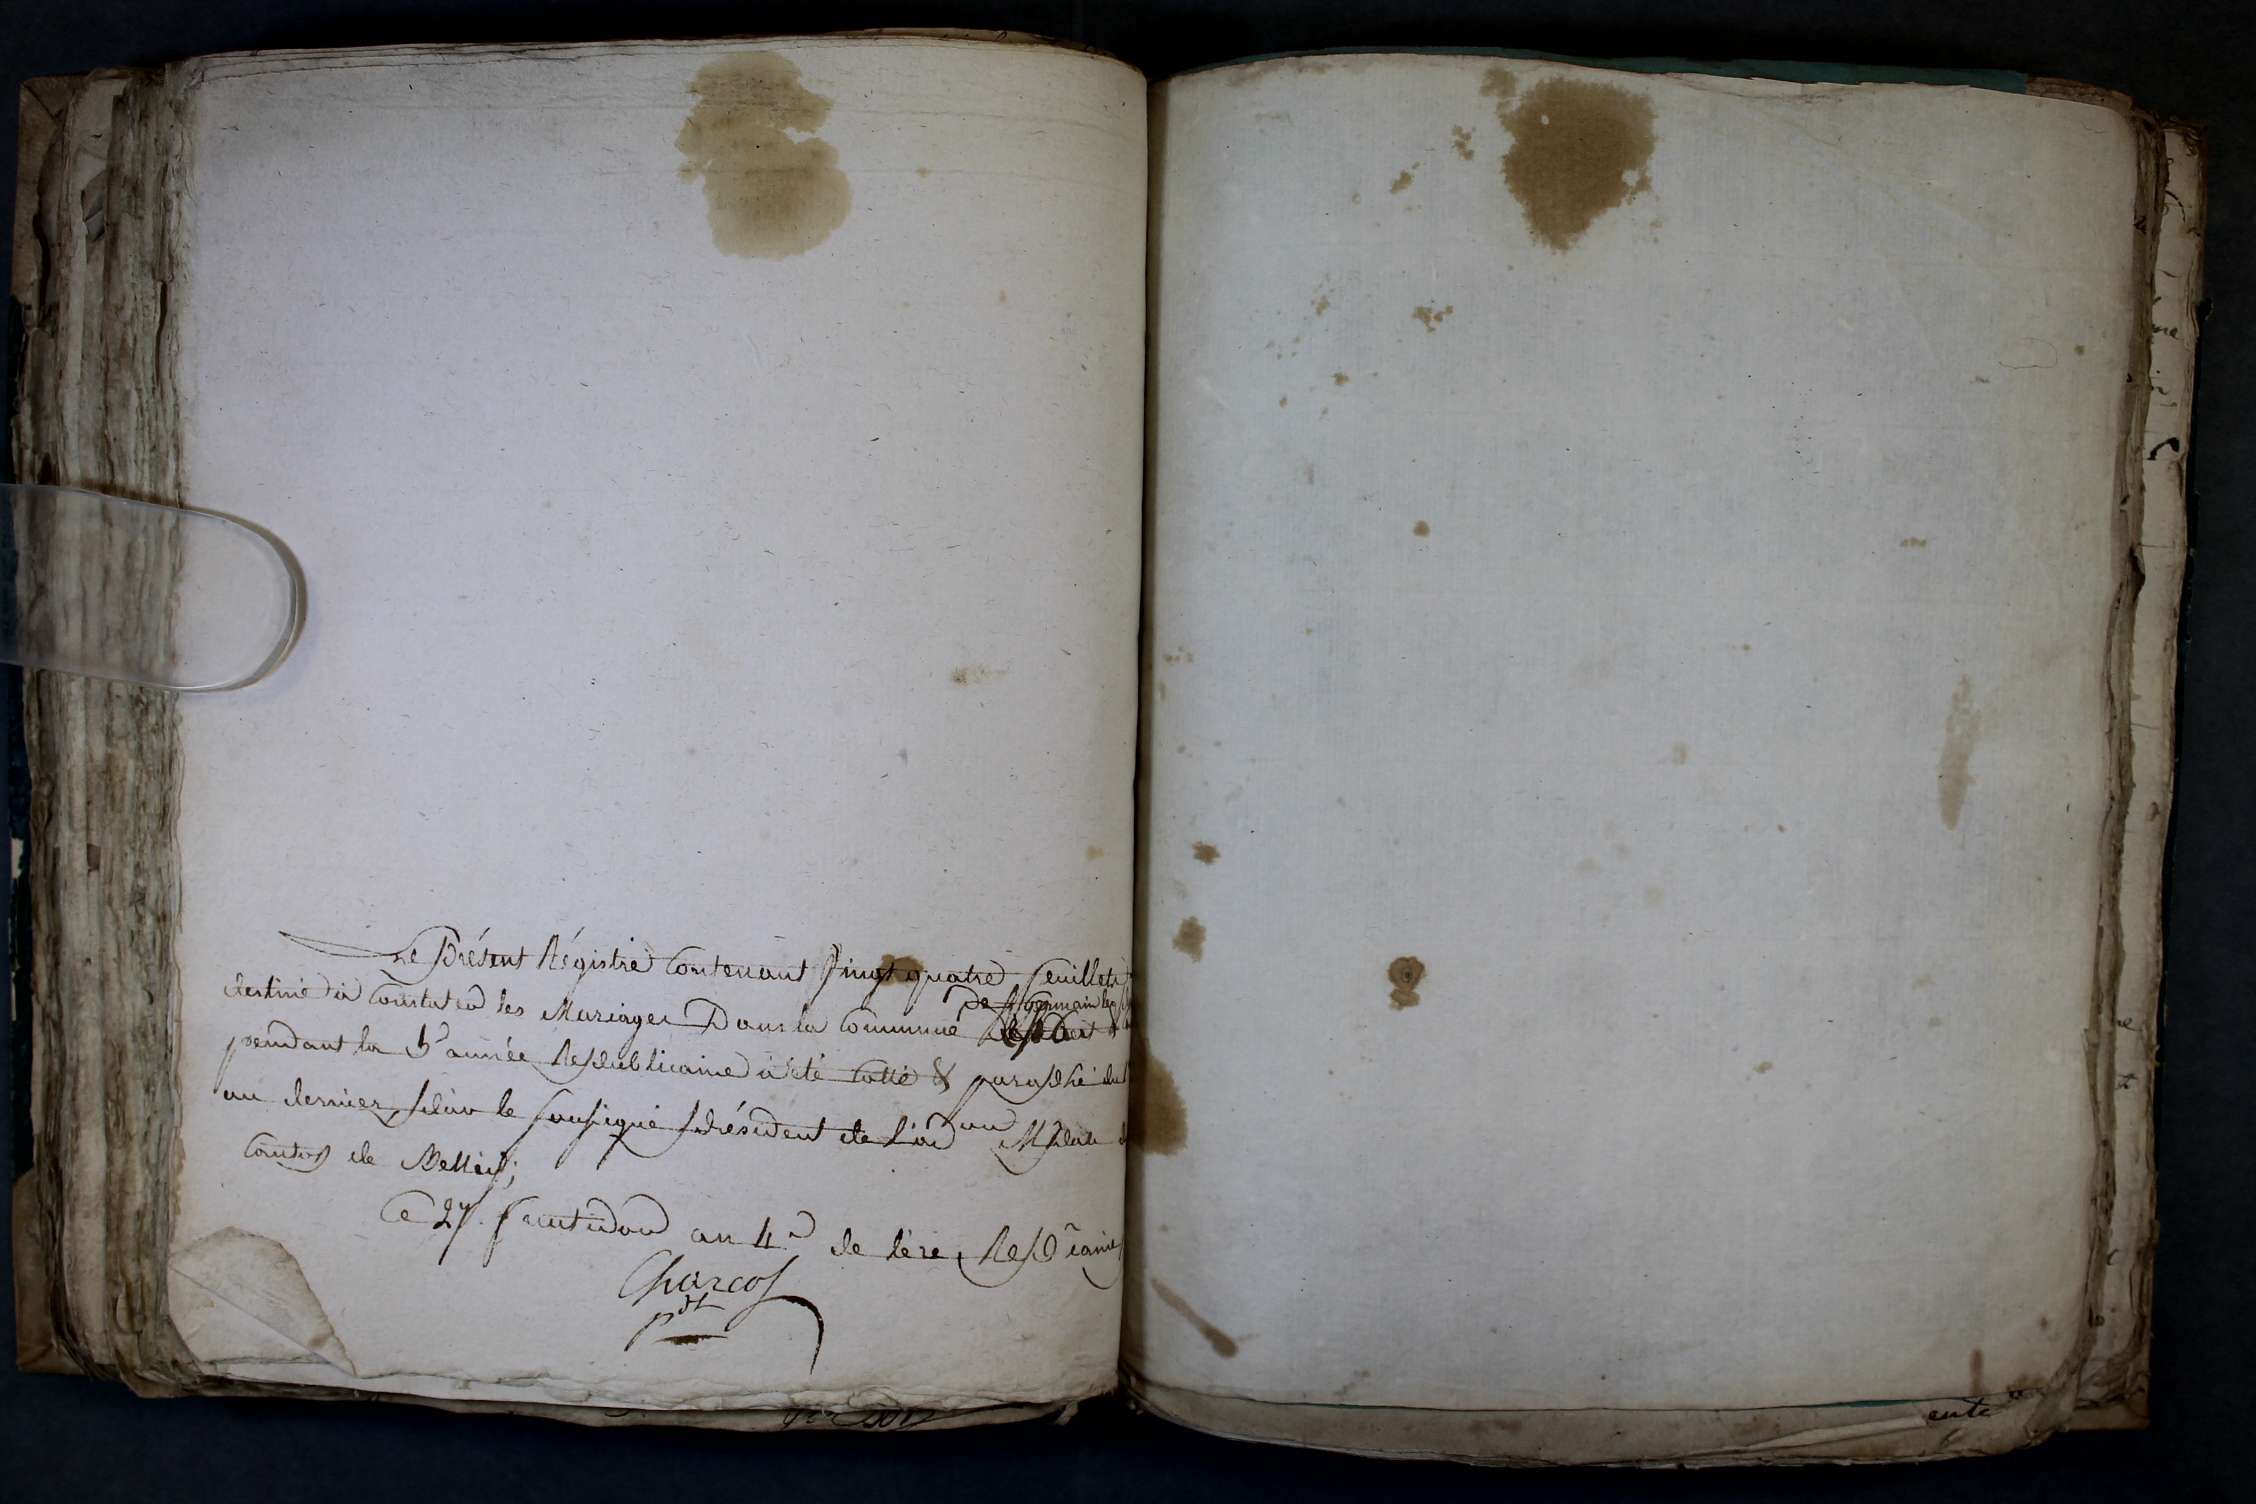 Le Présent Régistre Contenant Vingt quatre feuillets
destiné à Constater les Mariages Dans la Commune de St Germain les
pendant la 5e année Republicaine a été Cotté & paraphé du
au dernier, par le soussigné président de l'adon Mpale du
canton de Belley;
Ce 27. fructidor an 4e de l'ére Repcaine
Charcot
pdt
ente